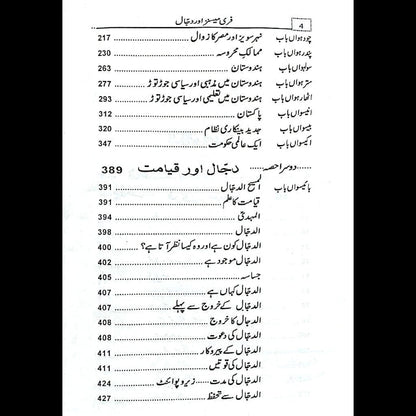 4 فری میسنز اور دجّال
چودہواں باب نہر سویز اور مصر کا زوال 217
پندرہواں باب ممالک محروسہ 230
سولہواں باب ہندوستان 263
سترہواں باب ہندوستان میں مذہبی اور سیاسی جوڑ توڑ 277
اٹھارہواں باب ہندوستان میں تعلیمی اور سیاسی جوڑ توڑ 293
انیسواں باب پاکستان 312
بیسواں باب جدید بینکاری نظام 320
اکیسواں باب ایک عالمی حکومت 347
دوسرا حصہ ...... دجّال اور قیامت 389
بائیسواں باب المسیح الدجّال 391
قیامت کا علم 391
المہدیؑ 394
الدجّال 398
الدجّال کون ہے اور وہ کیسا نظر آتا ہے؟ 400
الدجّال موجود ہے 402
جساسہ 405
الدجّال کہاں ہے 407
الدجّال کے خروج سے پہلے 407
الدجال کا خروج 408
الدجّال کی دعوت 408
الدجّال کے پیروکار 411
الدجّال کی قوتیں 411
الدجّال کی مدت ...... زیرو پوائنٹ 424
الدجّال سے تحفظ 427